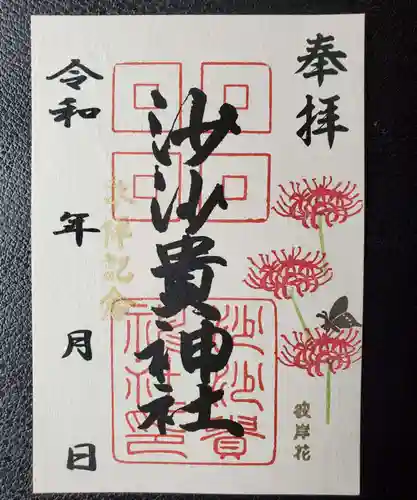 奉拝
沙沙貴神社
令和 年 月 日
参拝記念
彼岸花
沙沙貴
神社印